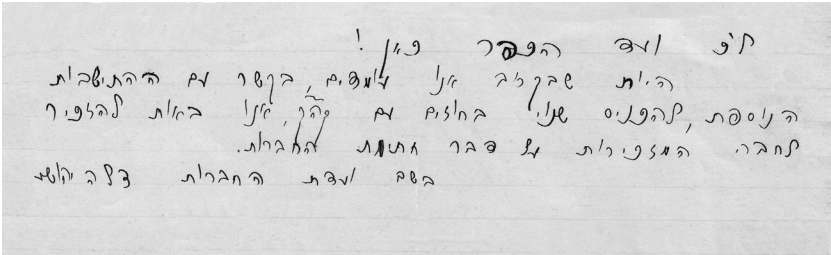 לכ' ועד הכפר כאן!
היות שבקרוב אנו עומדים, בקשר עם ההתישבות
הנוספת, להכניס שנוי בחוזים עם קהק, אנו באות להזכיר
לחברי המזכירות על דבר חתימת החברות.
בשם ועדת החברות